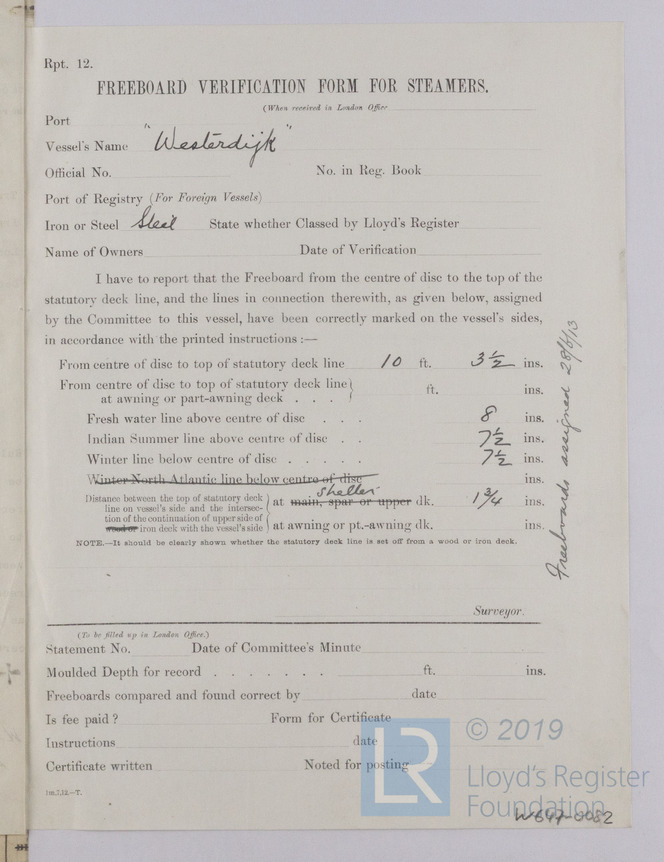 Rpt. 12.
FREEBOARD VERIFICATION FORM FOR STEAMERS.
(When received in London Office
Port
Vessel's Name "Westerdijk"
Official No. No. in Reg. Book
Port of Registry (For Foreign Vessels)
Iron or Steel Steel State whether Classed by Lloyd's Register
Name of Owners Date of Verification
I have to report that the Freeboard from the centre of disc to the top of the
statutory deck line, and the lines in connection therewith, as given below, assigned
by the Committee to this vessel, have been correctly marked on the vessel's sides,
in accordance with the printed instructions :—
From centre of disc to top of statutory deck line 10 ft. 3½ ins.
From centre of disc to top of statutory deck line
at awning or part-awning deck . . . ft. ins.
Fresh water line above centre of disc . . . 8 ins.
Indian Summer line above centre of disc . . 7½ ins.
Winter line below centre of disc . . . . . 7½ ins.
Winter North Atlantic line below centre of disc ins.
Distance between the top of statutory deck
line on vessel's side and the intersec-
tion of the continuation of upper side of
wood or iron deck with the vessel's side
shelter
at main, spar or upper dk. 1¾ ins.
at awning or pt.-awning dk. ins.
NOTE.—It should be clearly shown whether the statutory deck line is set off from a wood or iron deck.
Freeboards assigned 28/6/13
Surveyor.
(To be filled up in London Office.)
Statement No. Date of Committee's Minute
Moulded Depth for record . . . . . . . ft. ins.
Freeboards compared and found correct by date
Is fee paid ? Form for Certificate
Instructions date
Certificate written Noted for posting
1m,7,12.—T.
LR
© 2019
Lloyd's Register
Foundation
W647-0082